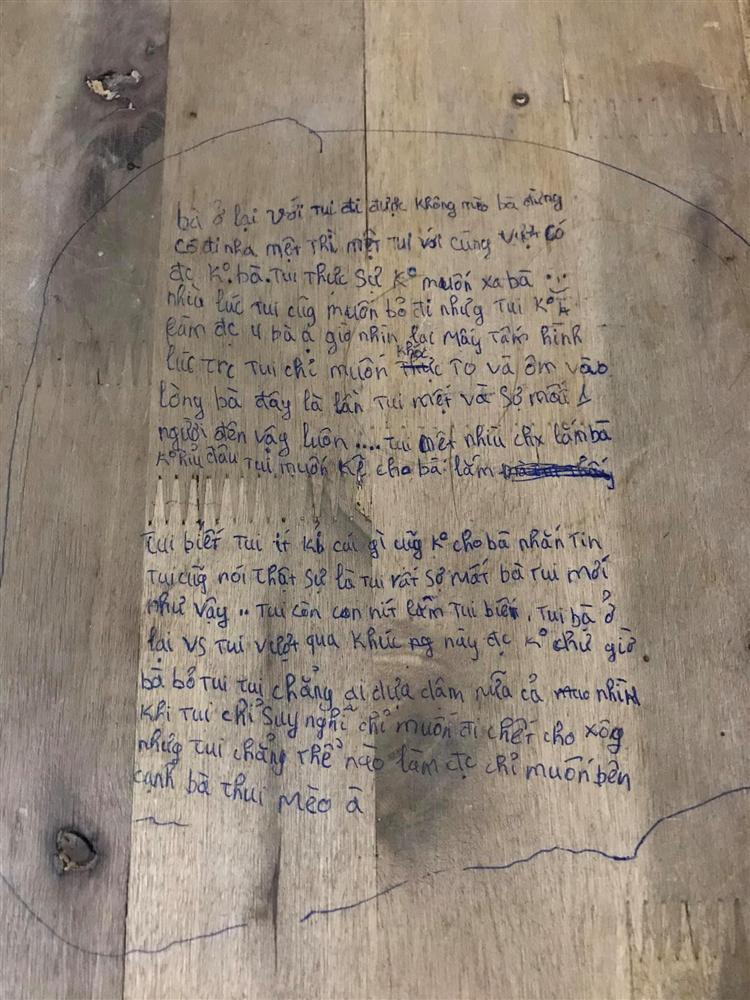 bà ở lại với tui đi được không mèo bà đừng
cố đi nha mệt thì mệt tui với cùng vượt có
đc k°. bà. Tui thực sự k° muốn xa bà ...
nhìu lúc tui cũg muốn bỏ đi nhưg tui k°
làm đc u bà ạ giờ nhìn lại mấy tấm hình
lúc trc tui chỉ muốn khóc To và ôm vào
lòng bà đây là lần tui mệt và sợ mất 1
người đến vậy luôn .... tui mệt nhìu chx lắm bà
k° hỉu đâu tui muốn kể cho bà lắm
Tui biết tui ít kỉ cái gì cũg k° cho bà nhắn tin
tui cũg nói thật sự là tui rất sợ mất bà tui mới
như vậy .. tui còn con nít lắm tui biết. Tui bà ở
lại vs tui vượt qua khúc ng này đc k° chứ giờ
bà bỏ tui tui chẳng ai dựa dẫm nữa cả nhìn
khi tui chỉ suy nghĩ chỉ muốn đi chết cho xôg
nhưg tui chẳng thể nào làm đc chỉ muốn bên
cạnh bà thui mèo à